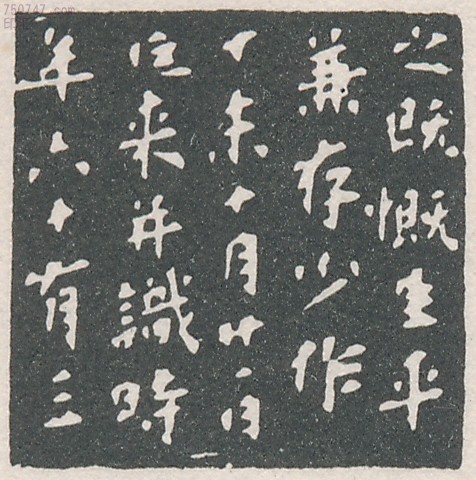 750747.com
之既慨生平
兼存少作
丁未十月廿一日
巨来并識時
年六十有三